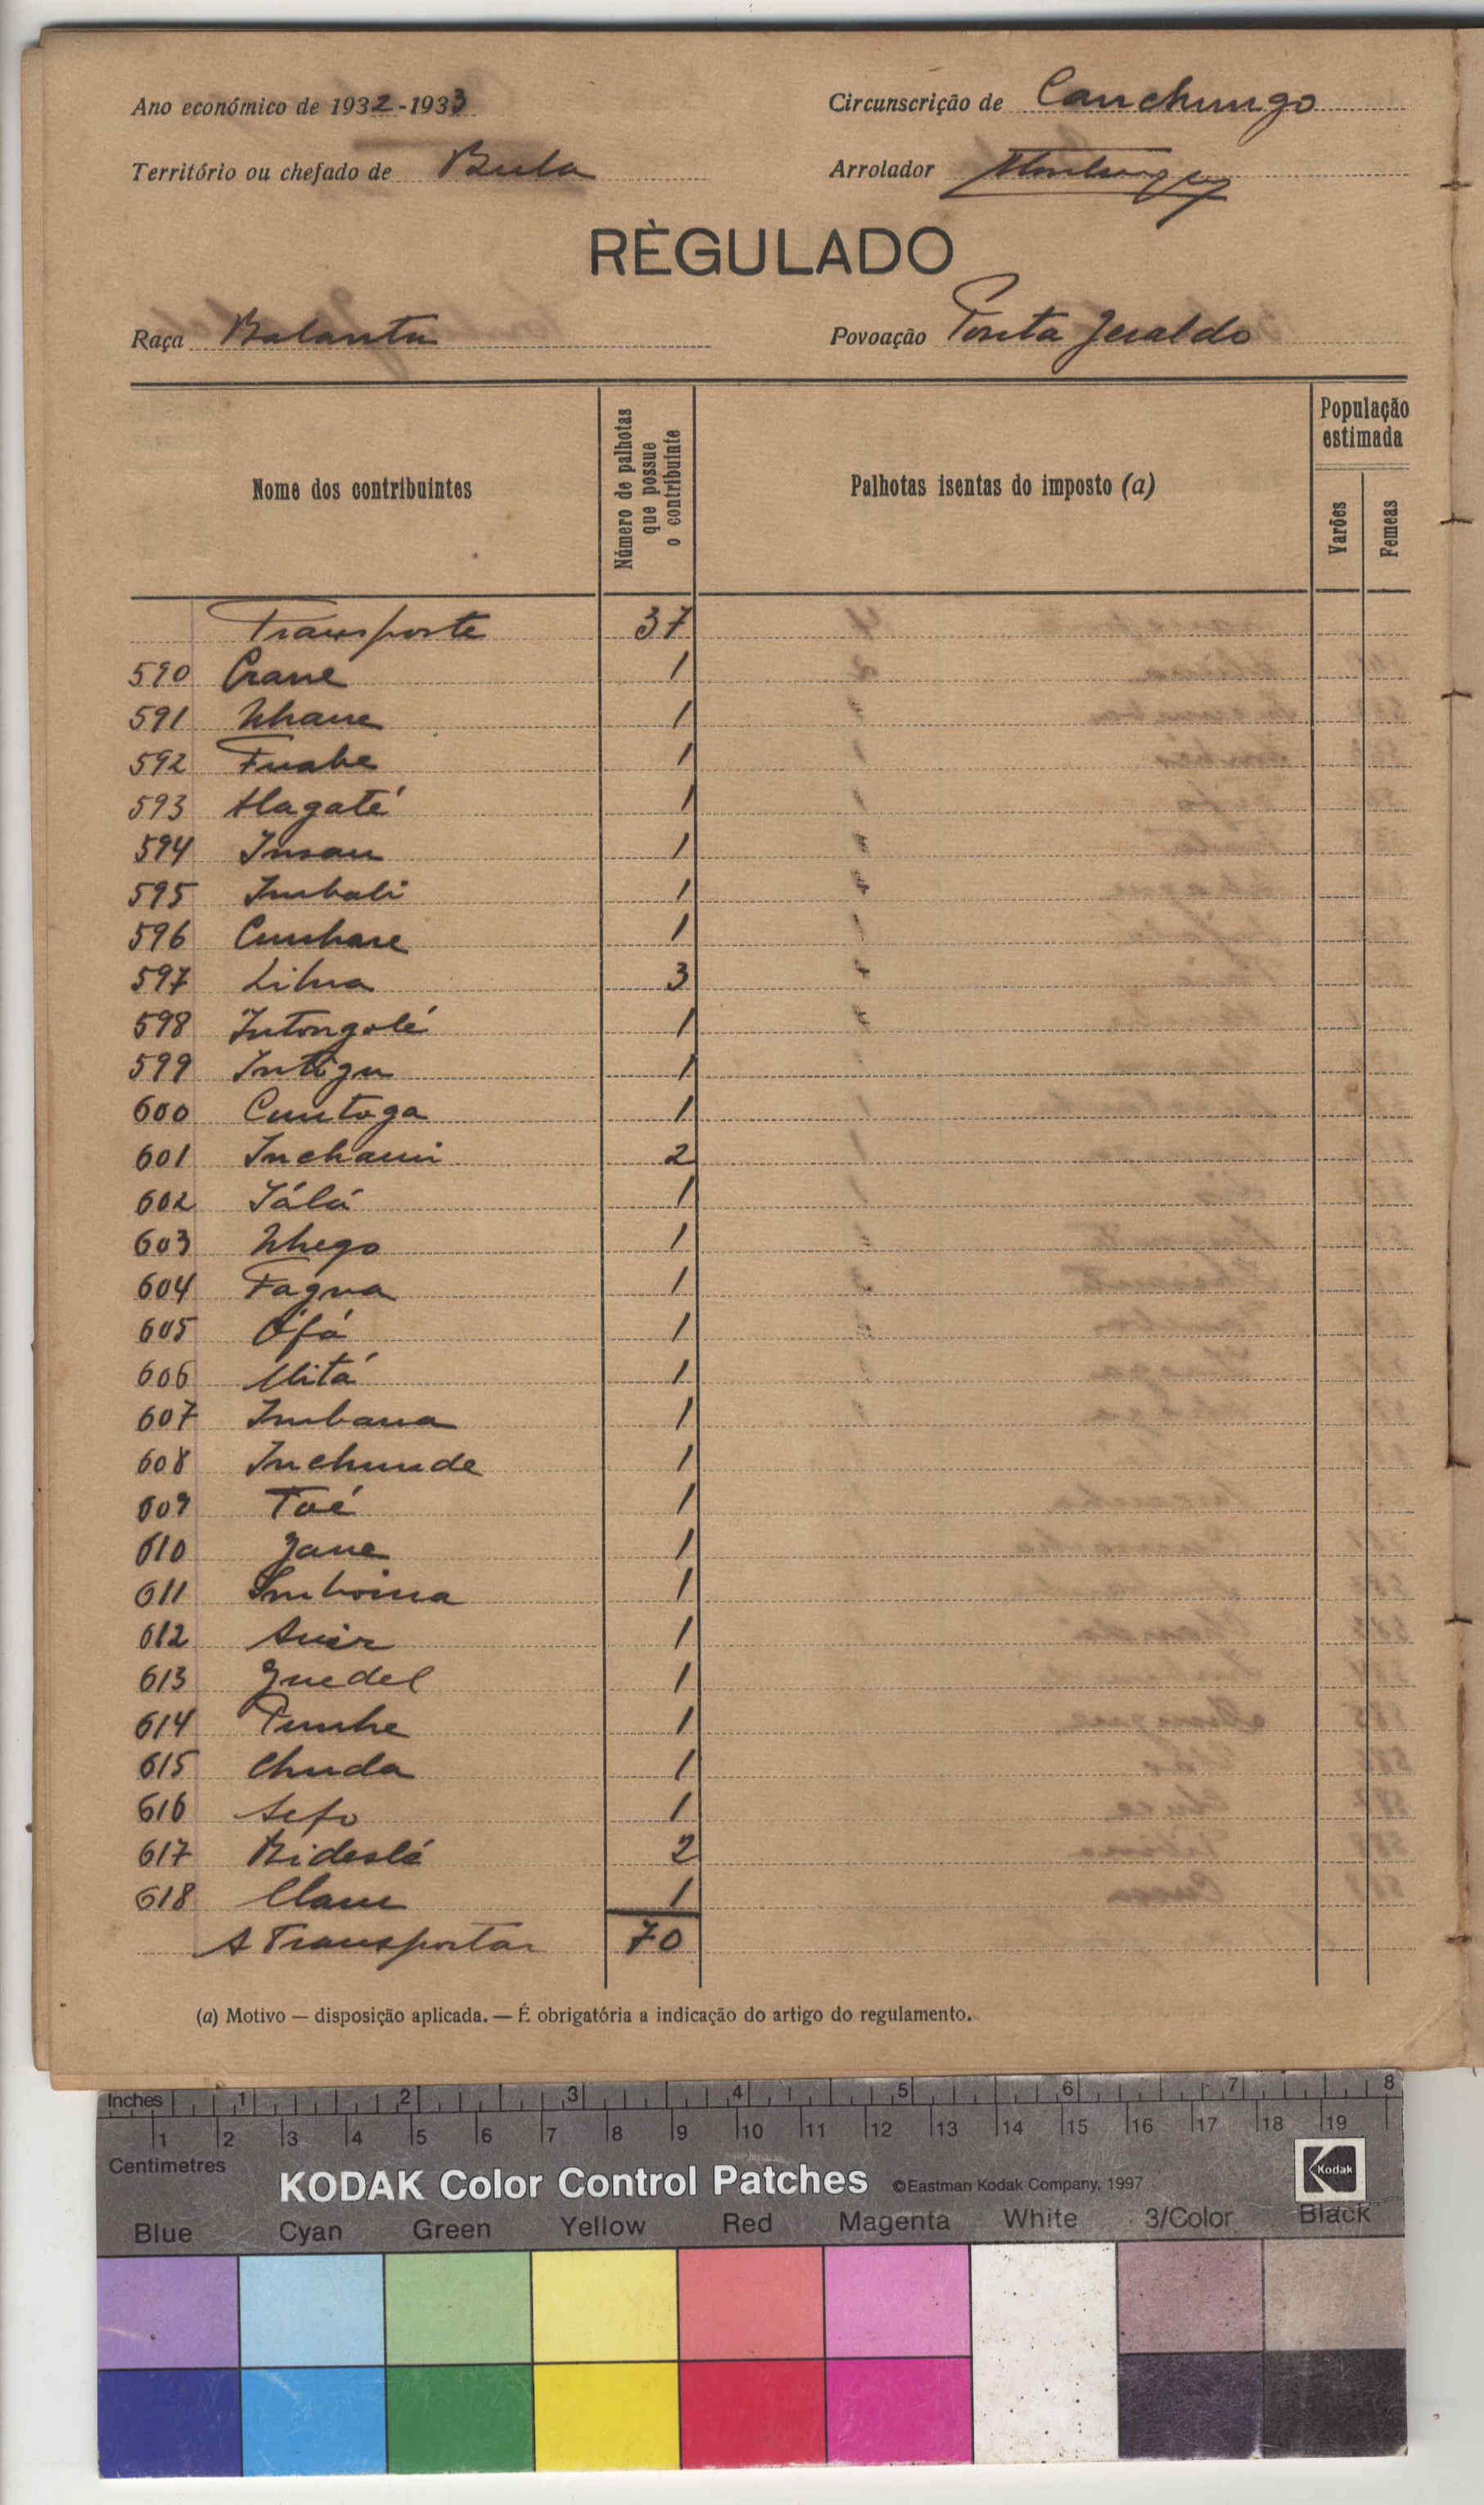 Ano económico de 1932-1933
Circunscrição de Canchungo
Território ou chefado de Bula
Arrolador
RÈGULADO
Raça Balanta
Povoação Ponta Jeraldo
Nome dos contribuintes
Número de palhotas que possue o contribuinte
Palhotas isentas do imposto (a)
População estimada
Varões
Femeas
Transporte 37
590 Crane 1
591 Nhane 1
592 Fuabe 1
593 Alagaté 1
594 Insau 1
595 Imbali 1
596 Cunhare 1
597 3
598 Intongolé 1
599 Intigu 1
600 Cuntoga 1
601 Inchami 2
602 Iálá 1
603 Nhego 1
604 Fagna 1
605 Ófá 1
606 Mitá 1
607 Imbana 1
608 Inchunde 1
609 Toé 1
610 Jane 1
611 Imboina 1
612 1
613 Guedel 1
614 Punhe 1
615 Chuda 1
616 Sefo 1
617 Bideslé 2
618 1
A Transportar 70
(a) Motivo — disposição aplicada. — É obrigatória a indicação do artigo do regulamento.
Inches 1 2 3 4 5 6 7 8
1 2 3 4 5 6 7 8 9 10 11 12 13 14 15 16 17 18 19
Centimetres
KODAK Color Control Patches ©Eastman Kodak Company, 1997 Kodak
Blue Cyan Green Yellow Red Magenta White 3/Color Black